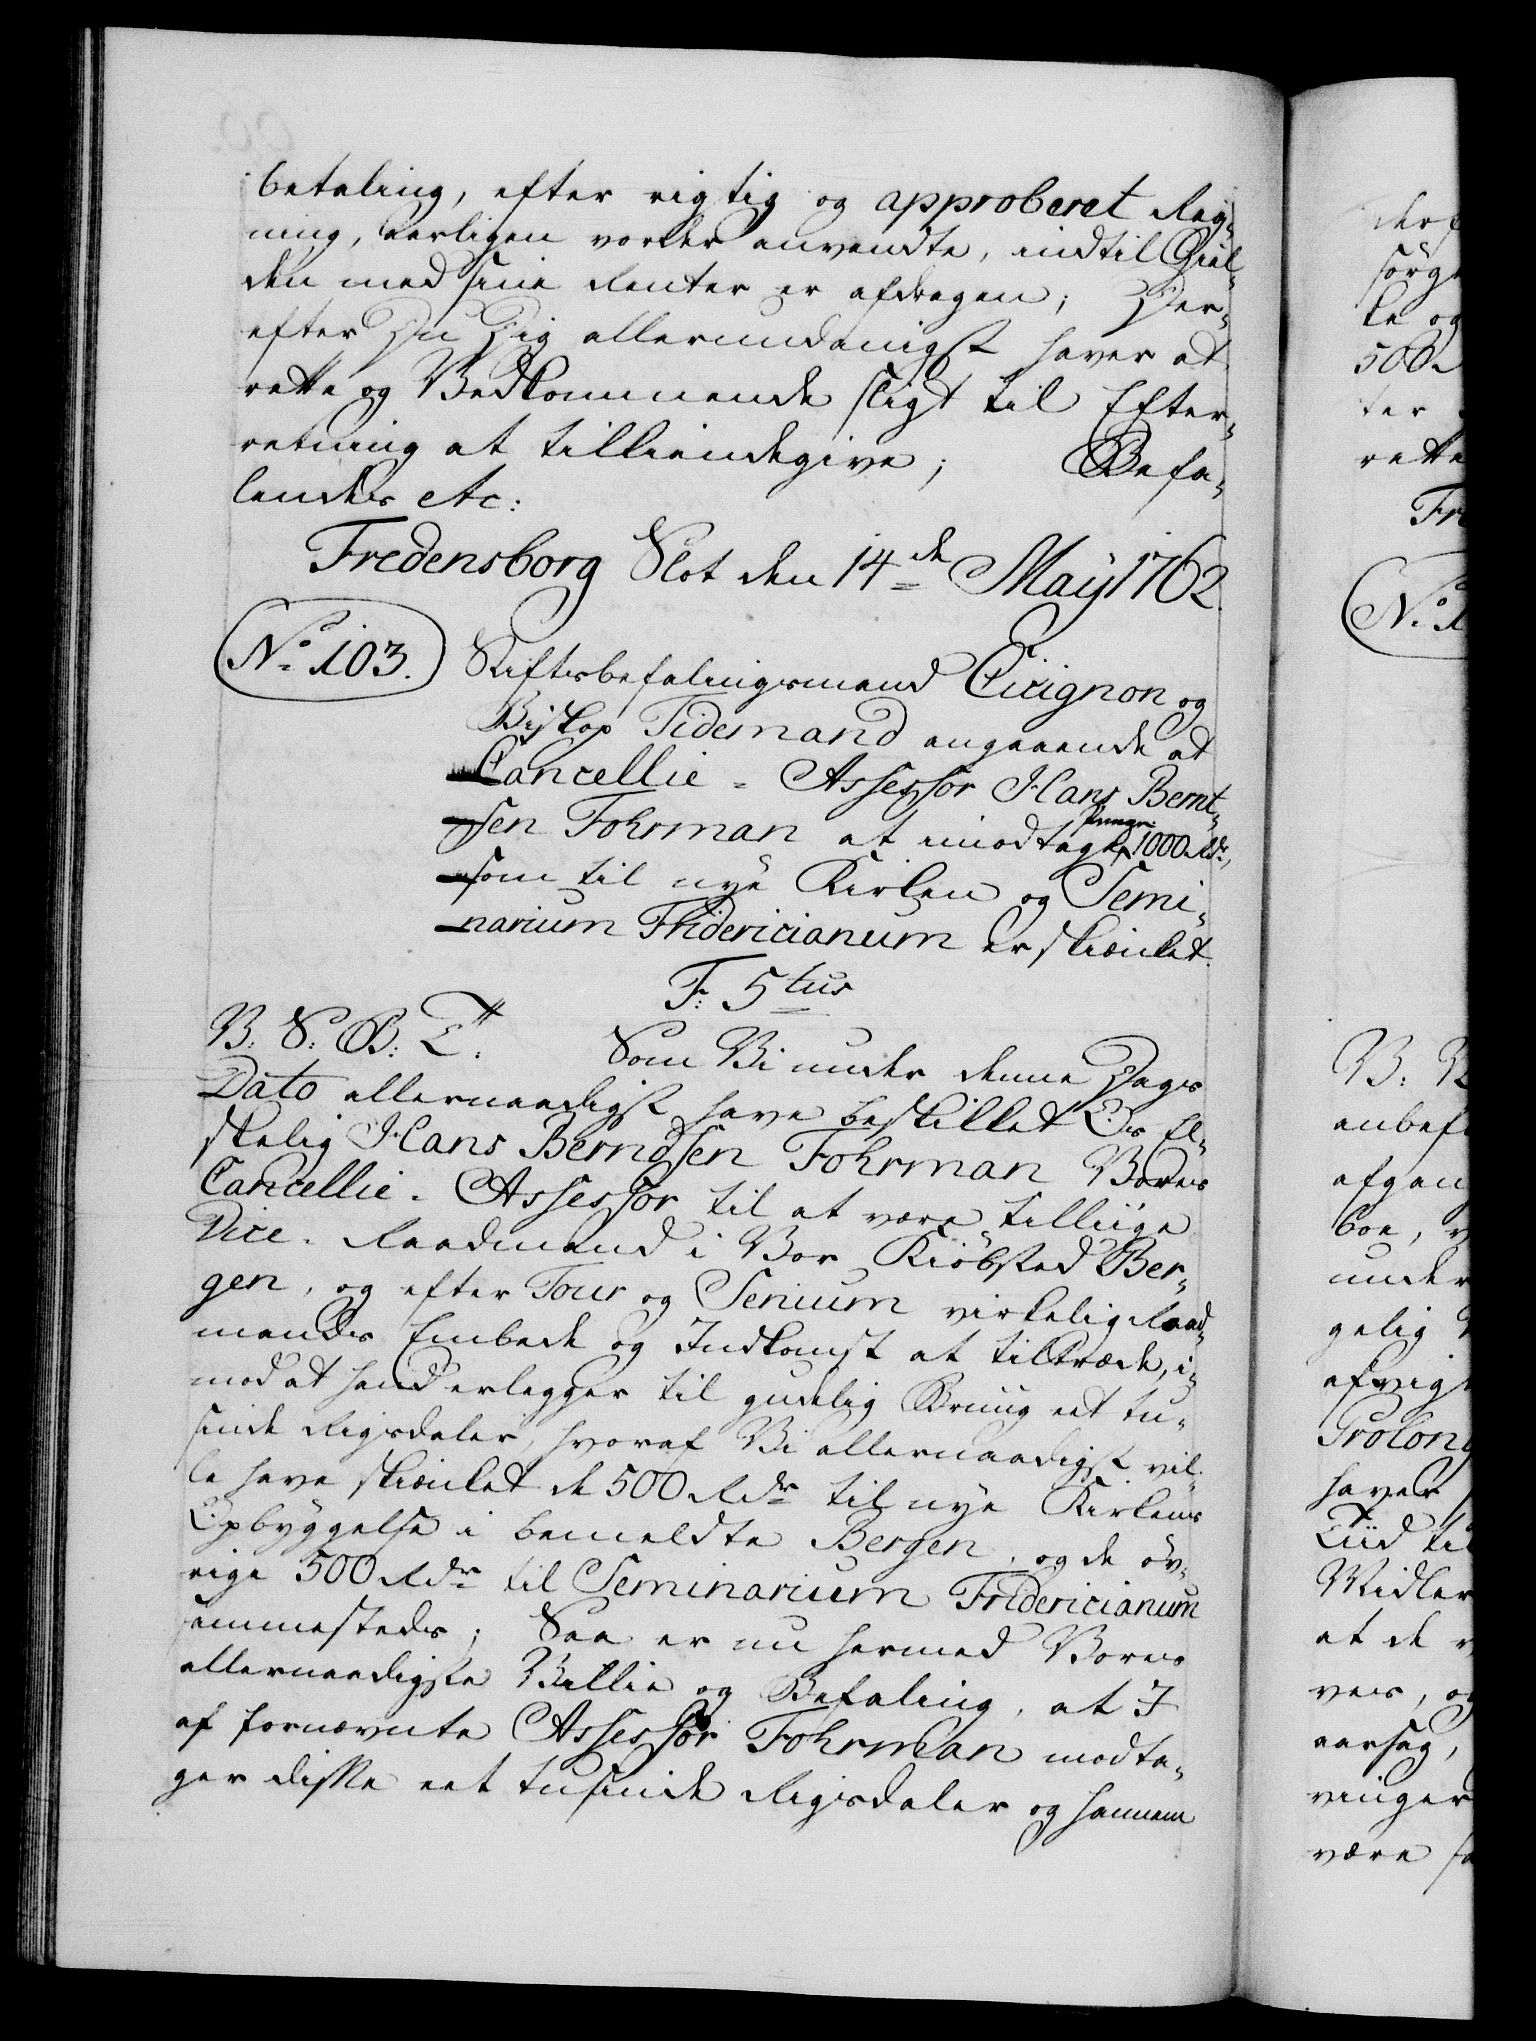 betaling, efter rigtig og approberet Reg-
ning, aarligen vorder anvendte, indtil Giel-
den med sine Renter er afdragen; Der-
efter Du Dig allerunderdanigst haver at
rette og Vedkommende sligt til Efter-
retning at tilkiendegive; Befa-
lendes etc:
Fredensborg Slot den 14de May 1762.
No 103. Stiftsbefalingsmand Cicignon og
Biskop Tidemand angaaende at
Cancellie-Assessor Hans Bernt-
sen Fohrman at imodtage Penge 1000 Rdr,
som til nye Kirken og Semi-
narium Fridericianum er skienket.
F: 5tus
V: S: B: T: Som Vi under denne Dags
Dato allernaadigst have beskikket Os El-
skelig Hans Berndsen Fohrman Vores
Cancellie-Assessor til at være tilliige
Vice-Raadmand i Vor Kiöbsted Ber-
gen, og efter Tour og Senium virkelig Raad-
mands Embede og Indkomst at tiltræde, i-
mod at hand erlegger til gudelig Bruug eet tu-
sinde Rigsdaler, hvoraf Vi allernaadigst vil-
le have skienket de 500 Rdr til nye Kirkens
Opbyggelse i bemeldte Bergen, og de öv-
rige 500 Rdr til Seminarium Fridericianum
sammesteds; Saa er nu hermed Vores
allernaadigste Villie og Befaling, at I
af fornævnte Assessor Fohrman modta-
ger disse eet tusinde Rigsdaler og hannem